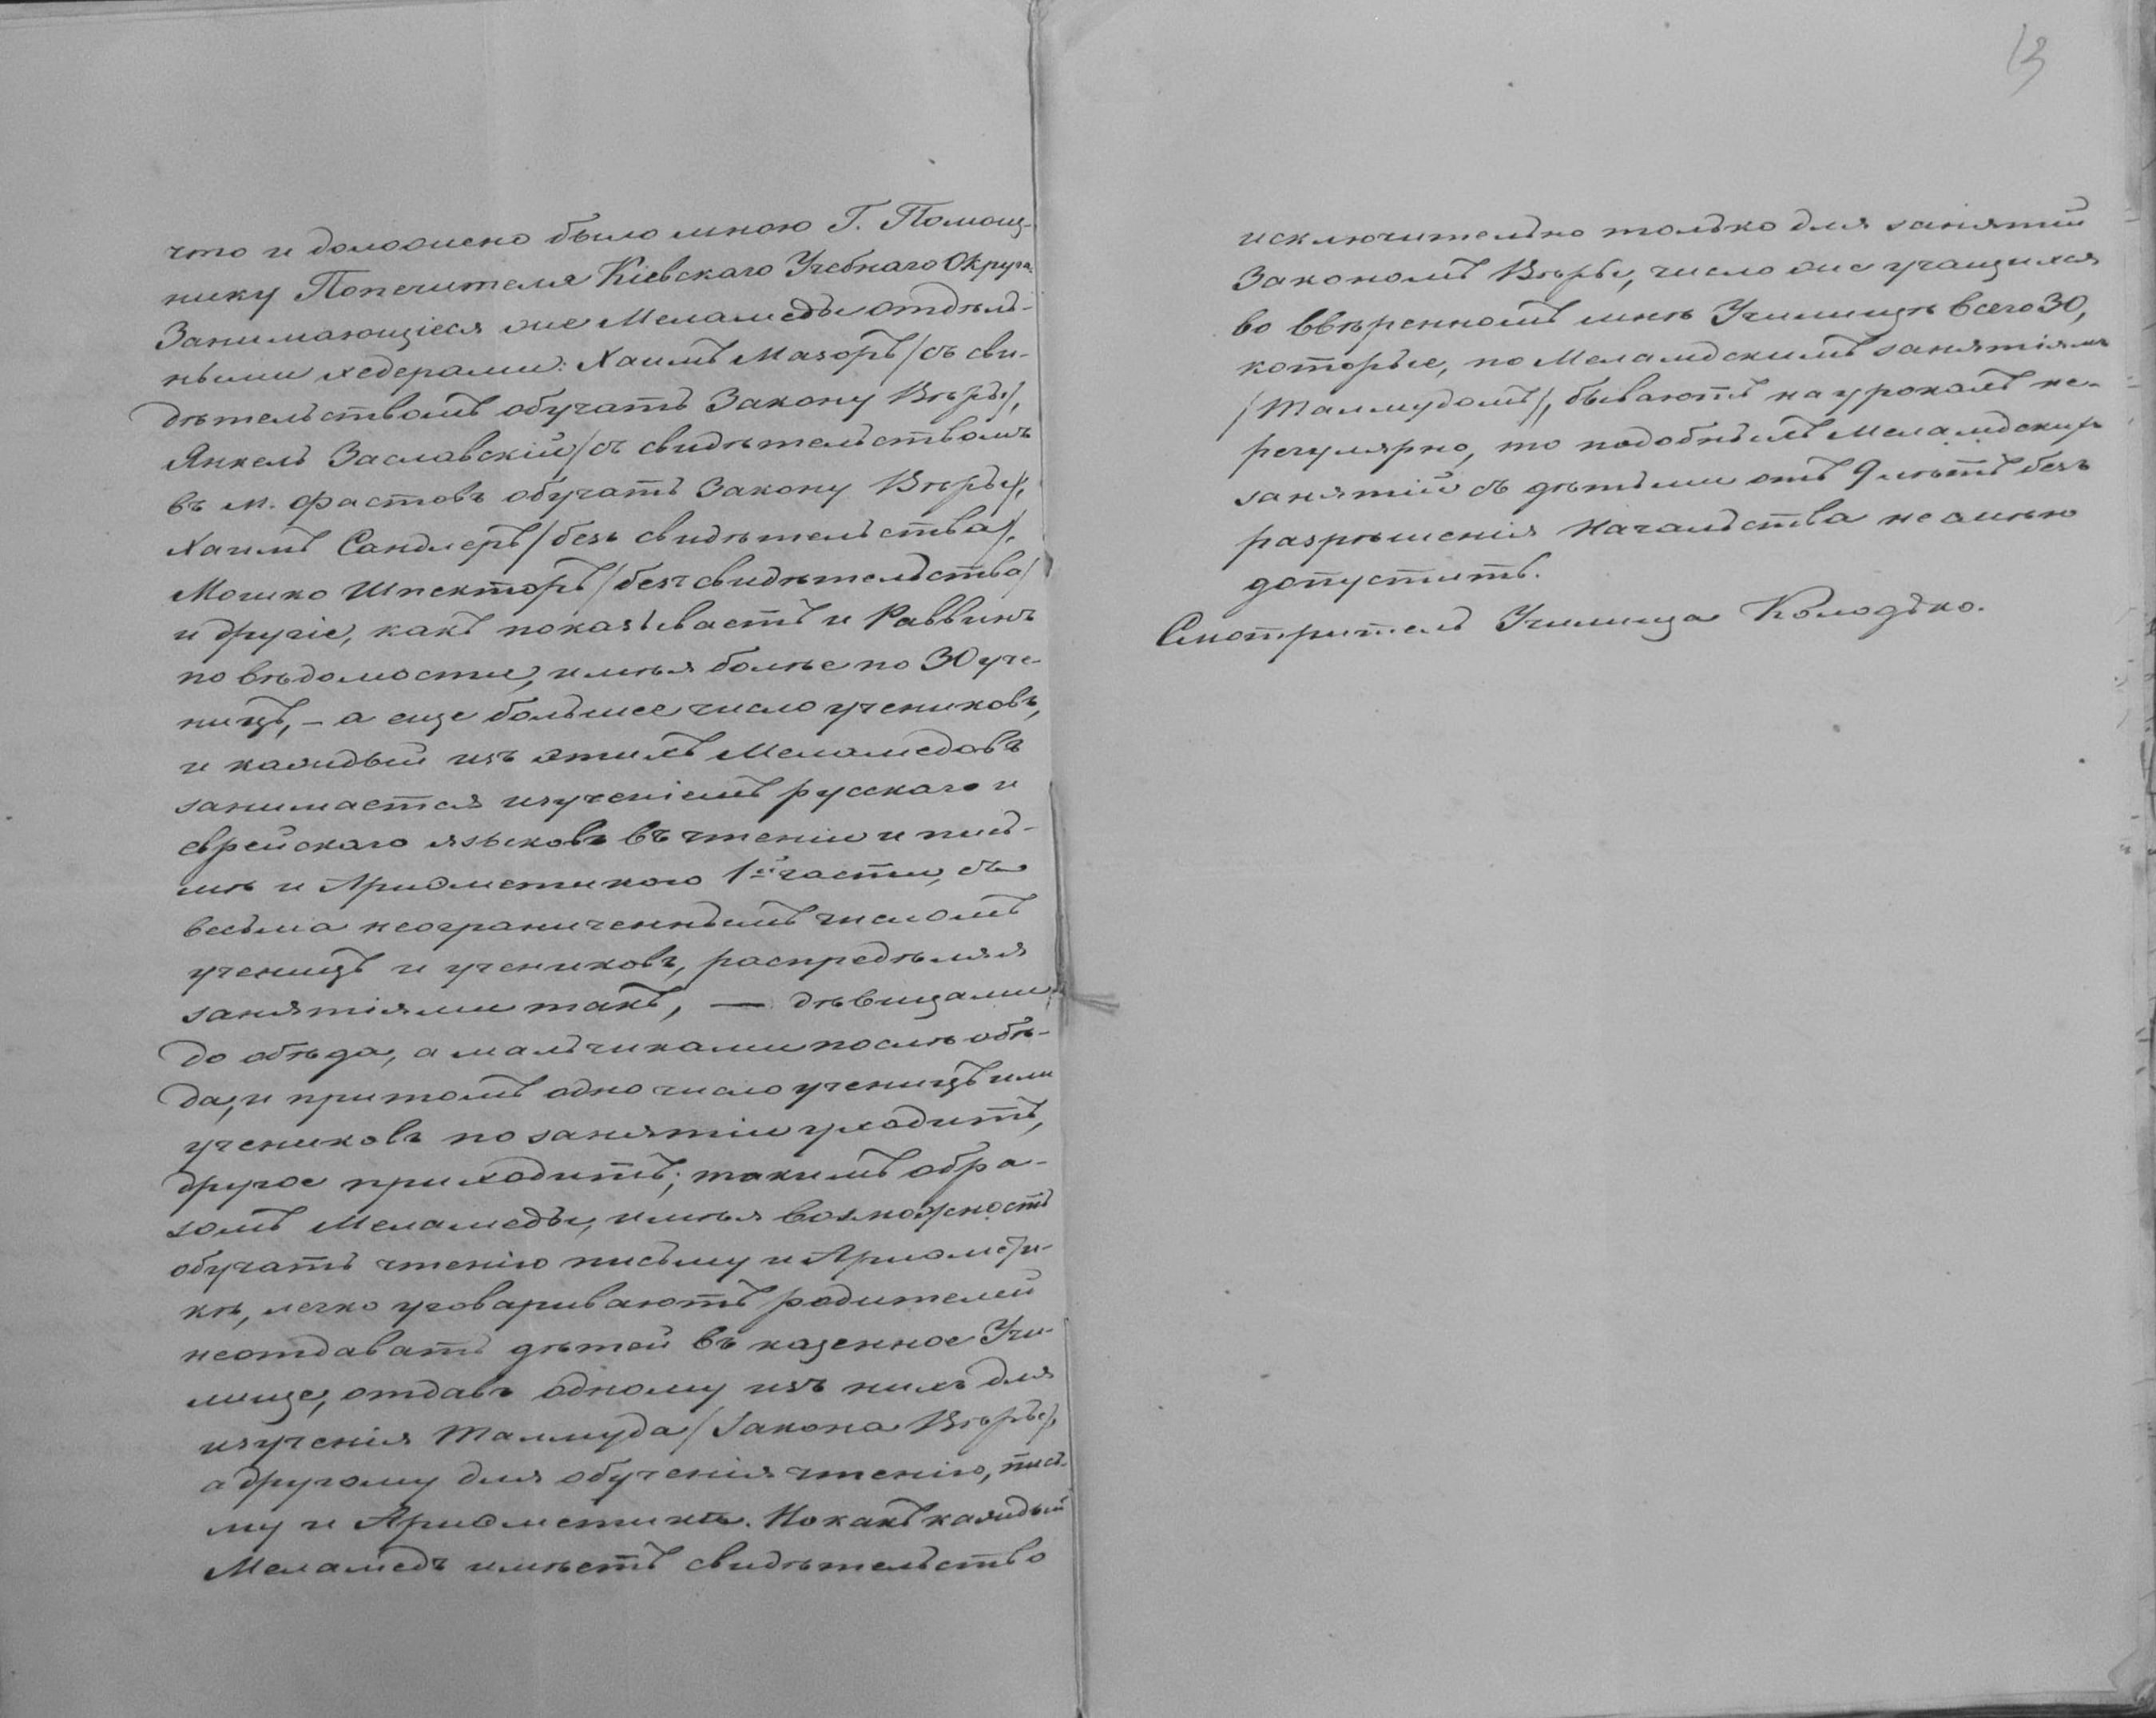 что и доложено было мною Г. Помощ-
нику Попечителя Кіевскаго Учебнаго Округа.
Занимающіеся же Меламеды отдѣль-
ными хедерами: Хаимъ Мазоръ /съ сви-
дѣтельствомъ обучать Закону Вѣры/,
Янкель Заславскій /съ свидѣтельствомъ
въ м. Фастовъ обучать Закону Вѣры/,
Хаимъ Сандлеръ /безъ свидѣтельства/,
Мошко Шпекторъ /безъ свидѣтельства/
и другіе, какъ показываетъ и Раввинъ
по вѣдомости, имѣя болѣе по 30 уче-
ницъ, – а еще большее число учениковъ,
и каждый изъ этихъ Меламедовъ
занимается изученіемъ русскаго и
еврейскаго языковъ въ чтеніи и пись-
мѣ и Ариѳметикою 1й части, съ
весьма неограниченнымъ числомъ
ученицъ и учениковъ, распредѣляя
занятіями такъ, — дѣвицами
до обѣда, а мальчиками послѣ обѣ-
да, и притомъ одно число ученицъ или
учениковъ по занятіи уходитъ,
другое приходитъ; такимъ обра-
зомъ Меламеды, имѣя возможность
обучать чтенію письму и Ариѳмети-
кѣ, легко уговариваютъ родителей
неотдавать дѣтей въ казенное Учи-
лище, отдавъ одному изъ нихъ для
изученія Талмуда /Закона Вѣры/,
а другому для обученія чтенію, пись-
му и Ариѳметики. Но какъ каждый
Меламедъ имѣетъ свидѣтельство
13
исключительно только для занятій
Закономъ Вѣры, число же учащихся
во ввѣренномъ мнѣ Училищѣ всего 30,
которые, по Меламдскимъ занятіямъ
/Талмудомъ/, бываютъ на урокахъ не-
регулярно, то подобныхъ Меламдскихъ
занятій съ дѣтьми отъ 9 лѣтъ безъ
разрѣшенія Начальства не смѣю
допустить.
Смотритель Училища Колодько.